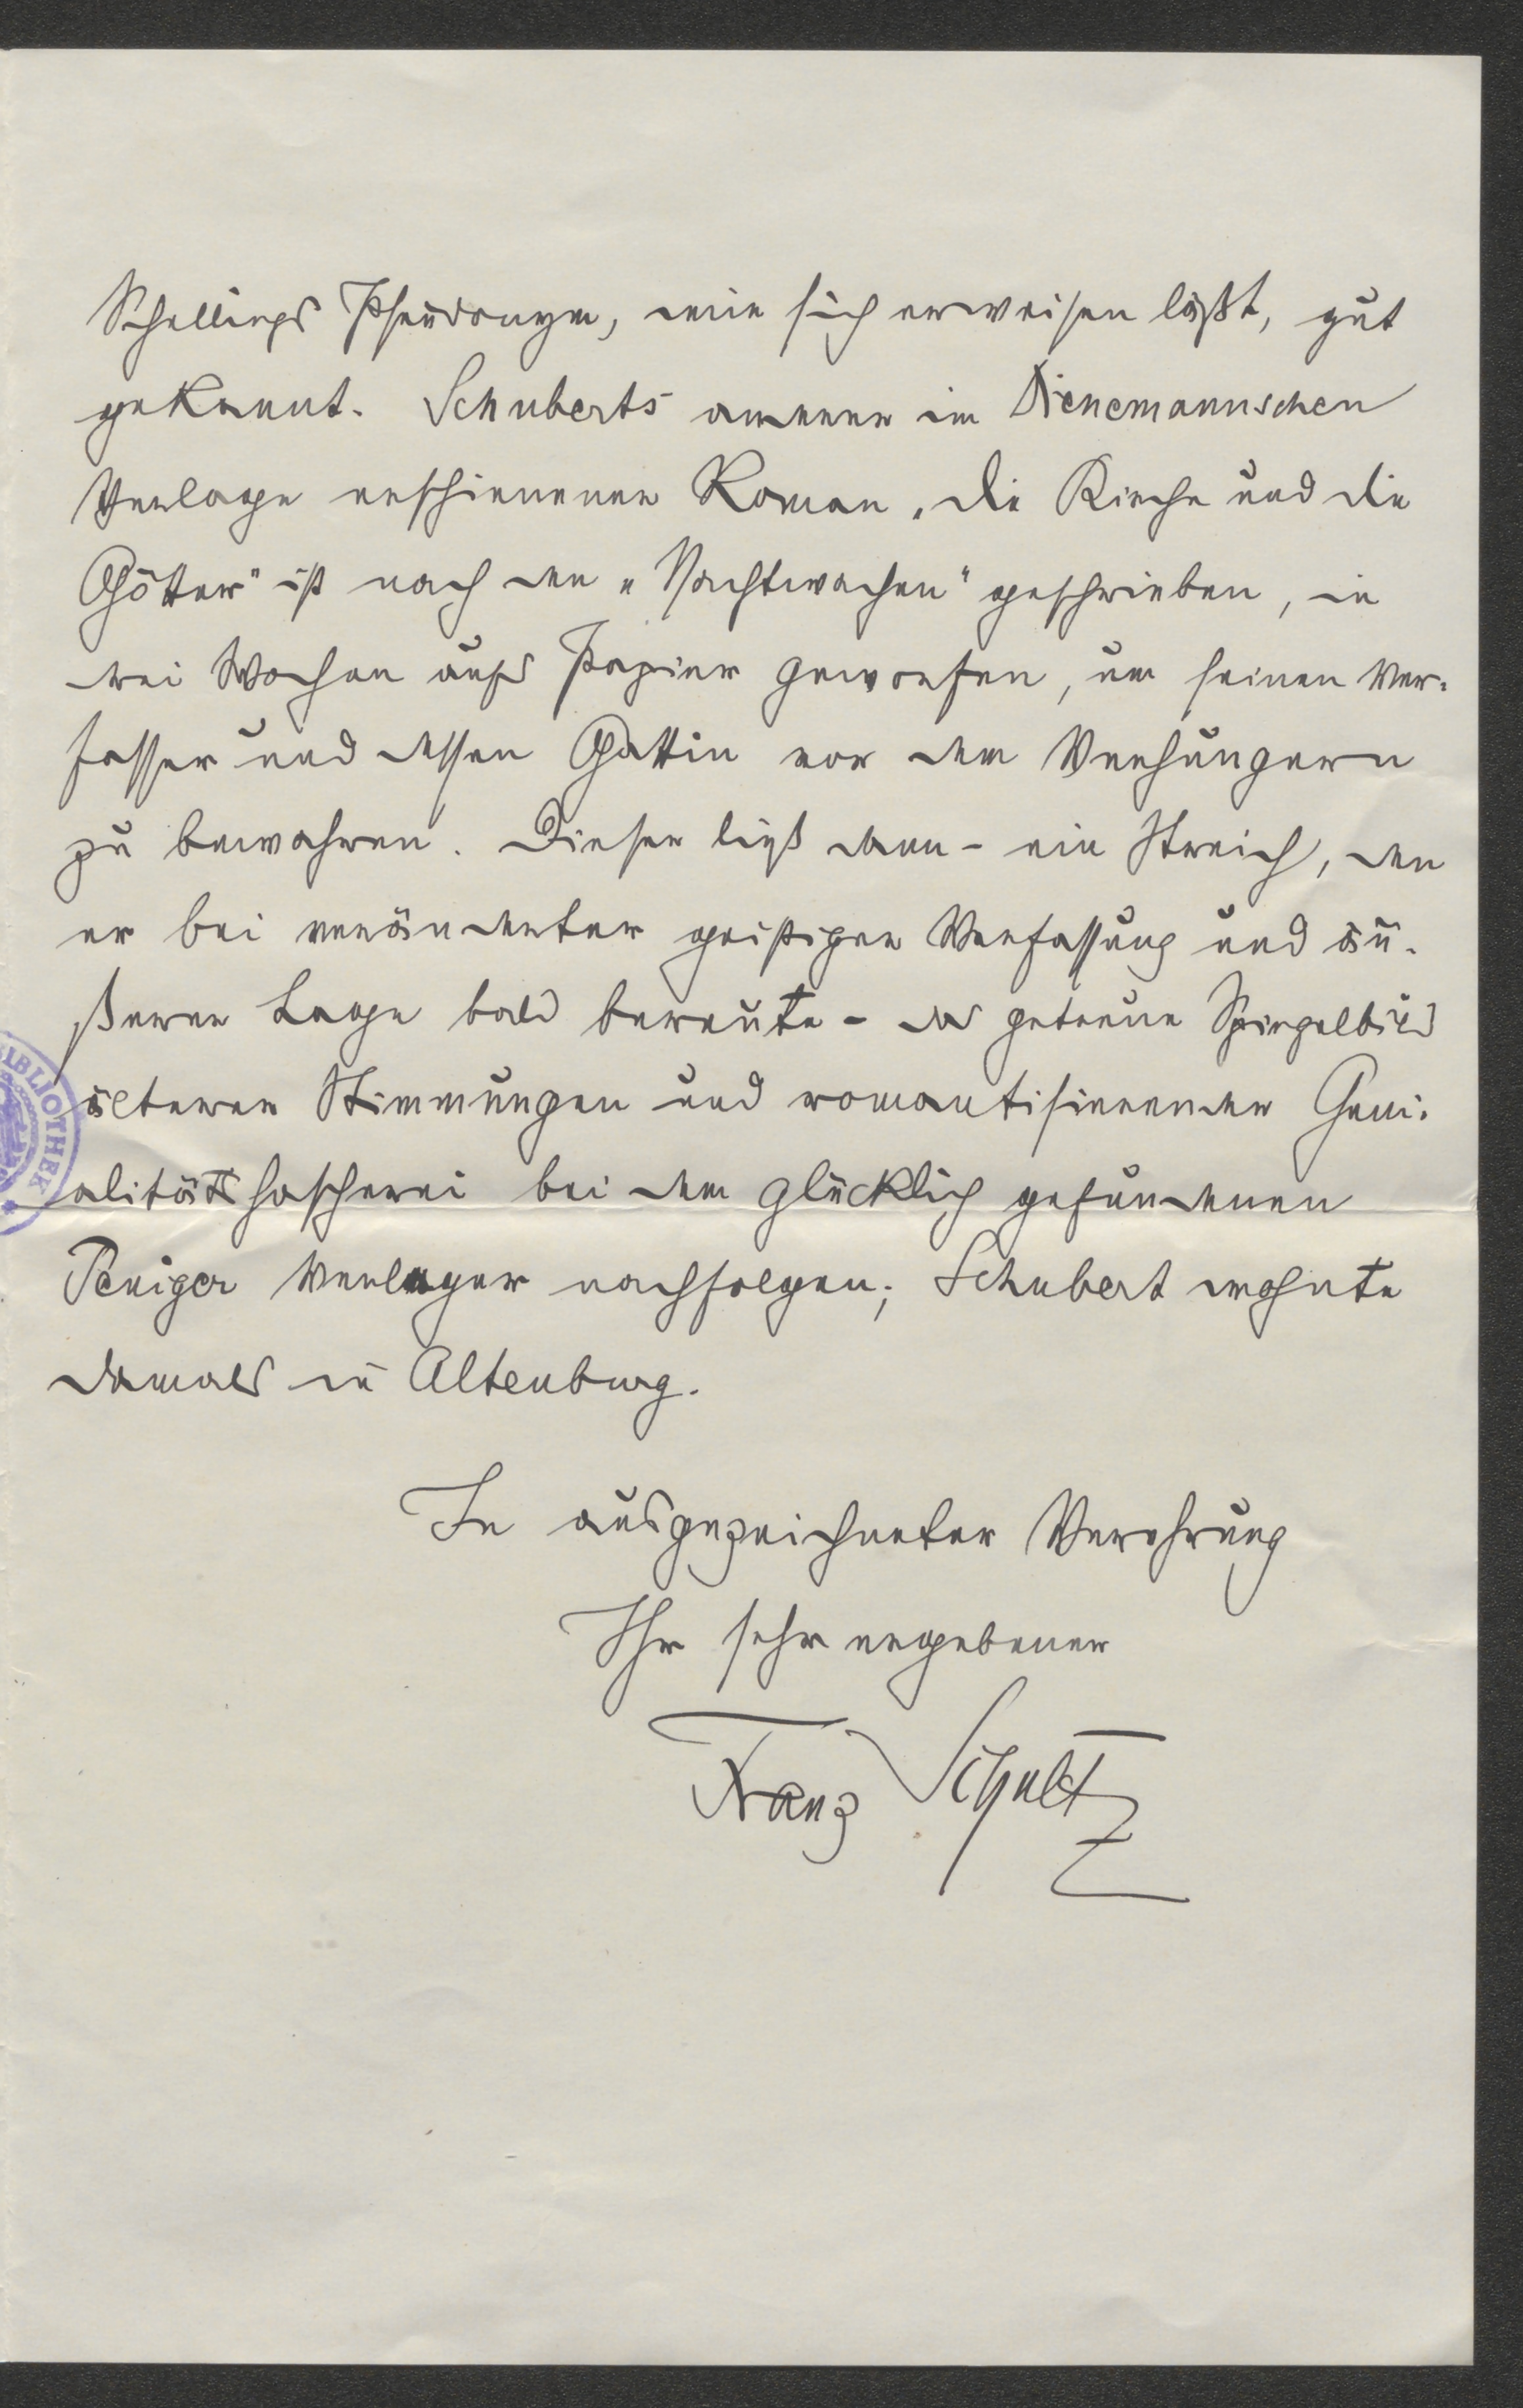 Schellings Pseudonym, wie sich erweisen läßt, gut
gekannt. Schuberts anderer im Dienemannschen
Verlage erschienener Roman „Die Kirche und die
Götter" ist nach den „Nachtwachen" geschrieben, in
drei Wochen aufs Papier geworfen, um seinen Ver-
fasser und dessen Gattin vor dem Verhungern
zu bewahren. Dieser ließ dann – ein Streich, den
er bei veränderter geistiger Verfassung und äu-
ßerer Lage bald bereute – das getreue Spiegelbild
älterer Stimmungen und romantisierender Geni-
alitätshascherei bei dem glücklich gefundenen
Peniger Verleger nachfolgen; Schubert wohnte
damals in Altenburg.
In ausgezeichneter Verehrung
Ihr sehr ergebener
Franz Schultz
BIBLIOTHEK